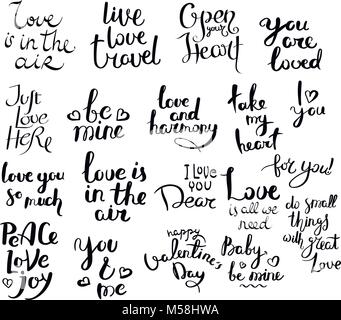 Love
is in the
air
live
love
travel
Open
your
Heart
you are
loved
Just
Love
HeRe
be
mine
love
and
harmony
take
my
heart
I
you
love you
so much
love is
in the
air
I Love
you
Dear
Love
is all we
need
for you!
do small
things
with great
Love
PeACe
LoVe
joy
you
&
me
happy
Valentine's
Day
Baby
be mine
alamy
Image ID: M58HWA
www.alamy.com